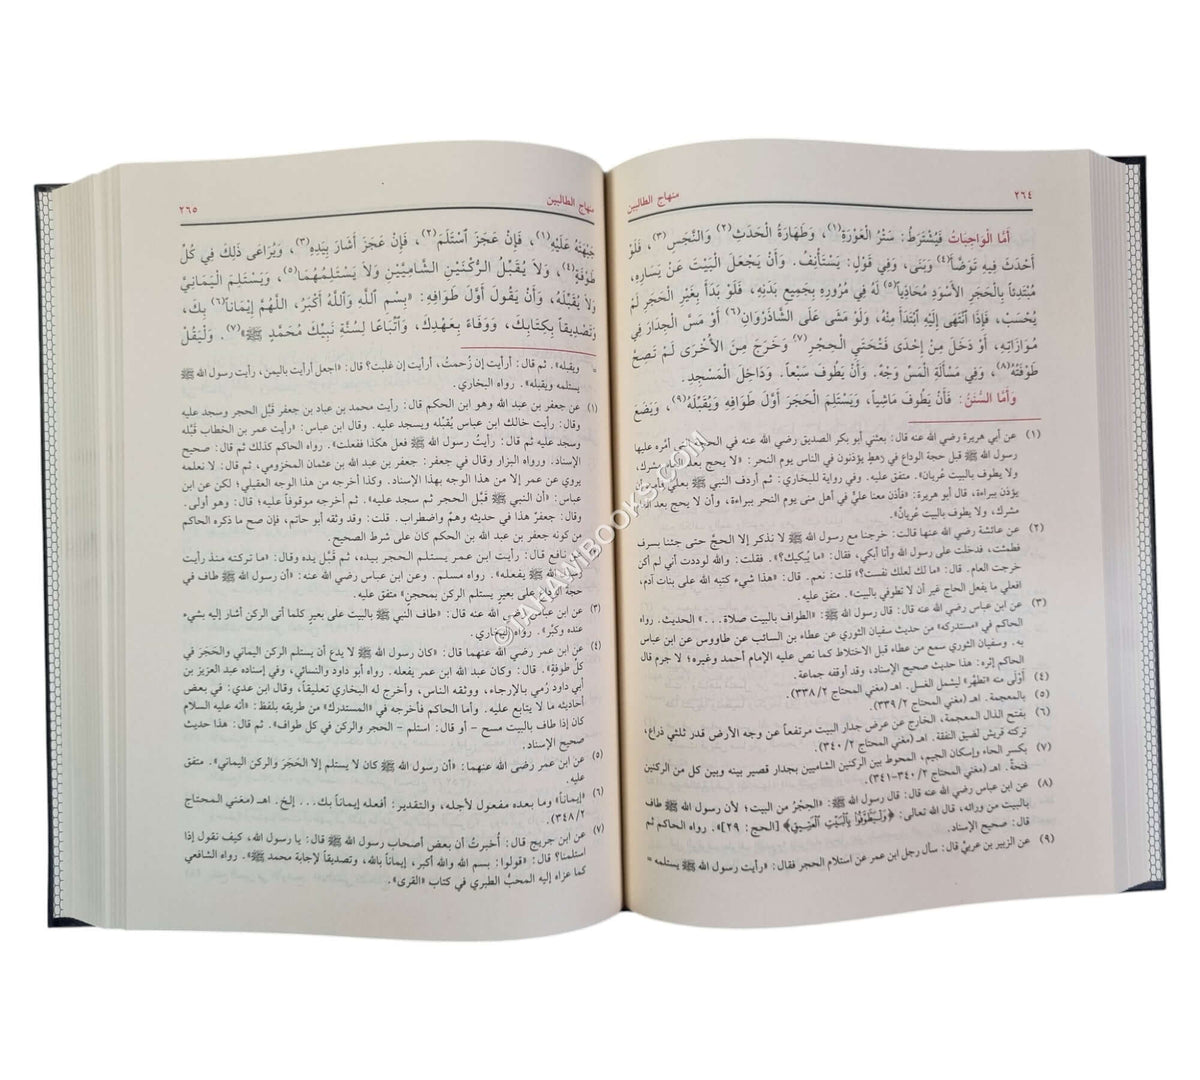 ٢٦٤
منهاج الطالبين
أَمَّا الْوَاجِبَاتُ فَيُشْتَرَطُ: سَتْرُ الْعَوْرَةِ(١)، وَطَهَارَةُ الْحَدَثِ(٢) وَالنَّجَسِ(٣)، فَلَوْ
أَحْدَثَ فِيهِ تَوَضَّأَ(٤) وَبَنَى، وَفِي قَوْلٍ: يَسْتَأْنِفُ. وَأَنْ يَجْعَلَ الْبَيْتَ عَنْ يَسَارِهِ،
مُبْتَدِئاً بِالْحَجَرِ الأَسْوَدِ مُحَاذِياً(٥) لَهُ فِي مُرُورِهِ بِجَمِيعِ بَدَنِهِ، فَلَوْ بَدَأَ بِغَيْرِ الْحَجَرِ لَمْ
يُحْسَبْ، فَإِذَا انْتَهَى إِلَيْهِ ابْتَدَأَ مِنْهُ، وَلَوْ مَشَى عَلَى الشَّاذَرْوَانِ(٦) أَوْ مَسَّ الْجِدَارَ فِي
مُوَازَاتِهِ، أَوْ دَخَلَ مِنْ إِحْدَى فَتْحَتَيِ الْحِجْرِ(٧) وَخَرَجَ مِنَ الأُخْرَى لَمْ تَصِحَّ
طَوْفَتُهُ(٨)، وَفِي مَسْأَلَةِ الْمَسِّ وَجْهٌ. وَأَنْ يَطُوفَ سَبْعاً. وَدَاخِلَ الْمَسْجِدِ.
وَأَمَّا السُّنَنُ: فَأَنْ يَطُوفَ مَاشِياً، وَيَسْتَلِمَ الْحَجَرَ أَوَّلَ طَوَافِهِ وَيُقَبِّلَهُ(٩)، وَيَضَعَ
(١) عن أبي هريرة رضي الله عنه قال: بعثني أبو بكر الصديق رضي الله عنه في الحجة التي أمّره عليها
رسول الله ﷺ قبل حجة الوداع في رهطٍ يؤذنون في الناس يوم النحر: «لا يحج بعد مشرك،
ولا يطوف بالبيت عُريان». متفق عليه. وفي رواية للبخاري: ثم أردف النبي ﷺ بعلي
يؤذن ببراءة، قال أبو هريرة: «فأذن معنا عليٌّ في أهل منى يوم النحر ببراءة، وأن لا يحج بعد
مشرك، ولا يطوف بالبيت عُريانٌ».
(٢) عن عائشة رضي الله عنها قالت: خرجنا مع رسول الله ﷺ لا نذكر إلا الحجَّ حتى جئنا بسرف
فطمثت، فدخلت على رسول الله وأنا أبكي، فقال: «ما يُبكيك؟». فقلت: والله لوددت أني لم أكن
خرجت العام. قال: «ما لك لعلك نفست؟» قلت: نعم. قال: «هذا شيء كتبه الله على بنات آدم،
افعلي ما يفعل الحاج غير أن لا تطوفي بالبيت». متفق عليه.
(٣) عن ابن عباس رضي الله عنه قال: قال رسول الله ﷺ: «الطواف بالبيت صلاة...» الحديث. رواه
الحاكم في «مستدركه» من حديث سفيان الثوري عن عطاء بن السائب عن طاووس عن ابن عباس
به. وسفيان الثوري سمع من عطاء قبل الاختلاط كما نص عليه الإمام أحمد وغيره؛ لا جرم قال
الحاكم إثره: هذا حديث صحيح الإسناد، وقد أوقفه جماعة.
(٤) أَوْلَى منه «تطهَّر» ليشمل الغسل. اهـ (مغني المحتاج ٢/ ٣٣٨).
(٥) بالمعجمة. اهـ (مغني المحتاج ٢/ ٣٣٩).
(٦) بفتح الذال المعجمة، الخارج عن عرض جدار البيت مرتفعاً عن وجه الأرض قدر ثلثي ذراع،
تركته قريش لضيق النفقة. اهـ (مغني المحتاج ٢/ ٣٤٠).
(٧) بكسر الحاء وإسكان الجيم، المحوط بين الركنين الشاميين بجدار قصير بينه وبين كل من الركنين
فتحةٌ. اهـ (مغني المحتاج ٢/ ٣٤٠-٣٤١).
(٨) عن ابن عباس رضي الله عنه قال: قال رسول الله ﷺ: «الحِجْرُ من البيت؛ لأن رسول الله ﷺ طاف
بالبيت من ورائه، قال الله تعالى: ﴿وَلْيَطَّوَّفُوا بِالْبَيْتِ الْعَتِيقِ﴾ [الحج: ٢٩]». رواه الحاكم ثم
قال: صحيح الإسناد.
(٩) عن الزبير بن عربيٍّ قال: سأل رجل ابن عمر عن استلام الحجر فقال: «رأيت رسول الله ﷺ يستلمه =
منهاج الطالبين
٢٦٥
جَبْهَتَهُ عَلَيْهِ(١)، فَإِنْ عَجَزَ اسْتَلَمَ(٢)، فَإِنْ عَجَزَ أَشَارَ بِيَدِهِ(٣)، وَيُرَاعَى ذَلِكَ فِي كُلِّ
طَوْفَةٍ(٤)، وَلاَ يُقَبِّلُ الرُّكْنَيْنِ الشَّامِيَّيْنِ وَلاَ يَسْتَلِمُهُمَا(٥)، وَيَسْتَلِمُ الْيَمَانِيَّ
وَلاَ يُقَبِّلُهُ، وَأَنْ يَقُولَ أَوَّلَ طَوَافِهِ: «بِسْمِ اللهِ وَاللهُ أَكْبَرُ، اللَّهُمَّ إِيمَاناً(٦) بِكَ،
وَتَصْدِيقاً بِكِتَابِكَ، وَوَفَاءً بِعَهْدِكَ، وَاتِّبَاعاً لِسُنَّةِ نَبِيِّكَ مُحَمَّدٍ ﷺ»(٧). وَلْيَقُلْ
= ويقبله». ثم قال: أرأيت إن زُحمتُ، أرأيت إن غلبت؟ قال: «اجعل أرأيت باليمن، رأيت رسول الله ﷺ
يستلمه ويقبله». رواه البخاري.
(١) عن جعفر بن عبد الله وهو ابن الحكم قال: رأيت محمد بن عباد بن جعفر قبَّل الحجر وسجد عليه
وقال: رأيت خالك ابن عباس يُقبِّله ويسجد عليه. وقال ابن عباس: «رأيت عمر بن الخطاب قبَّله
وسجد عليه ثم قال: رأيتُ رسول الله ﷺ فعل هكذا ففعلت». رواه الحاكم كذلك ثم قال: صحيح
الإسناد. ورواه البزار وقال في جعفر: جعفر بن عبد الله بن عثمان المخزومي، ثم قال: لا نعلمه
يروي عن عمر إلا من هذا الوجه بهذا الإسناد. وكذا أخرجه من هذا الوجه العقيلي؛ لكن عن ابن
عباس: «أن النبي ﷺ قَبَّل الحجر ثم سجد عليه». ثم أخرجه موقوفاً عليه؛ قال: وهو أولى.
وقال: جعفرٌ هذا في حديثه وهمٌ واضطراب. قلت: وقد وثقه أبو حاتم، فإن صح ما ذكره الحاكم
من كونه جعفر بن عبد الله بن الحكم كان على شرط الصحيح.
نافع قال: رأيت ابن عمر يستلم الحجر بيده، ثم قبَّل يده وقال: «ما تركته منذ رأيت
رسول الله ﷺ يفعله». رواه مسلم. وعن ابن عباس رضي الله عنه: «أن رسول الله ﷺ طاف في
حجة على بعيرٍ يستلم الركن بمحجنٍ» متفق عليه.
(٣) عن ابن عباس رضي الله عنه قال: «طاف النبي ﷺ بالبيت على بعيرٍ كلما أتى الركن أشار إليه بشيء
عنده وكبَّر». رواه البخاري.
(٤) عن ابن عمر رضي الله عنهما قال: «كان رسول الله ﷺ لا يدع أن يستلم الركن اليماني والحَجَرَ في
كلِّ طوفةٍ». قال: وكان عبد الله ابن عمر يفعله. رواه أبو داود والنسائي، وفي إسناده عبد العزيز بن
أبي داود رُمي بالإرجاء، ووثقه الناس، وأخرج له البخاري تعليقاً، وقال ابن عدي: في بعض
أحاديثه ما لا يتابع عليه. وأما الحاكم فأخرجه في «المستدرك» من طريقه بلفظ: «أنه عليه السلام
كان إذا طاف بالبيت مسح - أو قال: استلم - الحجر والركن في كل طواف». ثم قال: هذا حديث
صحيح الإسناد.
(٥) عن ابن عمر رضي الله عنهما: «أن رسول الله ﷺ كان لا يستلم إلا الحَجَرَ والركن اليماني». متفق
عليه.
(٦) «إيماناً» وما بعده مفعول لأجله، والتقدير: أفعله إيماناً بك... إلخ. اهـ (مغني المحتاج
٢/ ٣٤٨).
(٧) عن ابن جريج قال: أُخبرتُ أن بعض أصحاب رسول الله ﷺ قال: يا رسول الله، كيف نقول إذا
استلمنا؟ قال: «قولوا: بسم الله والله أكبر، إيماناً بالله، وتصديقاً لإجابة محمد ﷺ». رواه الشافعي
كما عزاه إليه المحبُّ الطبري في كتاب «القرى».
©TAHAWIBOOKS.COM